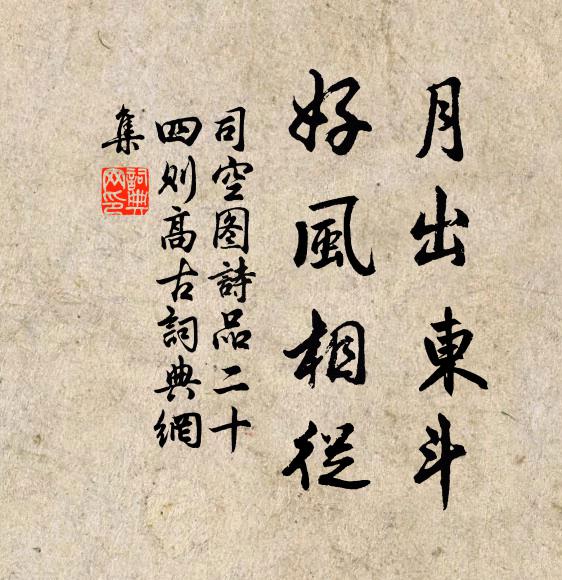 月出東斗
好風相從
司空图詩品二十
四则高古詞典網
集
詞典
网印